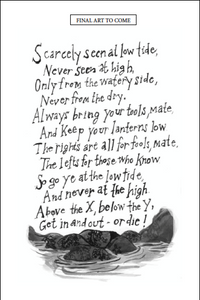 FINAL ART TO COME
Scarcely seen at low tide,
Never seen at high,
Only from the watery side,
Never from the dry.
Always bring your tools, mate,
And Keep your lanterns low
The rights are all for fools, mate,
The lefts for those who know
So go ye at the low tide,
And never at the high.
Above the X, below the Y,
Get in and out - or die!